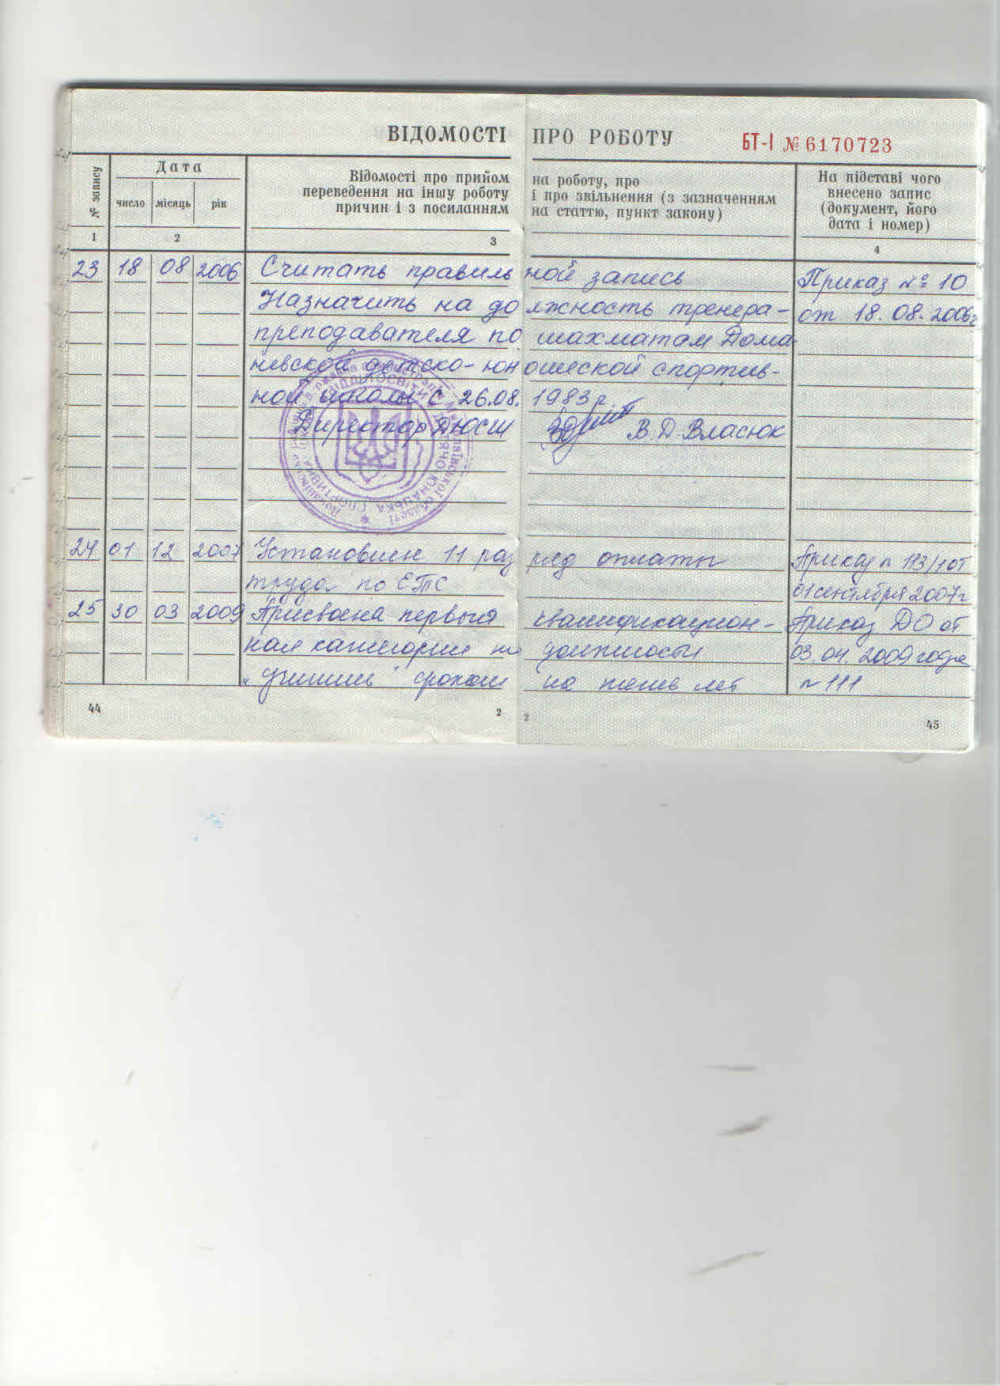 ВІДОМОСТІ ПРО РОБОТУ БТ-І № 6170723
№ запису
Дата
число місяць рік
Відомості про прийом на роботу, про
переведення на іншу роботу і про звільнення (з зазначенням
причин і з посиланням на статтю, пункт закону)
На підставі чого
внесено запис
(документ, його
дата і номер)
1 2 3 4
23 18 08 2006 Считать правильной запись Приказ № 10
Назначить на должность тренера- от 18.08.2006г
преподавателя по шахматам Дома
невской детско-юношеской спортив-
ной школы с 26.08.1983г.
Директор ДЮСШ В.Д.Власюк
24 01 12 2007 Установлен 11 разряд оплаты Приказ n 113/1от
труда по ЕТС 01 сентября 2007г
25 30 03 2009 Присвоена первая квалификацион- Приказ ДО от
ная категория по должности 03.04.2009 года
сроком на пять лет n 111
44 2 2 45